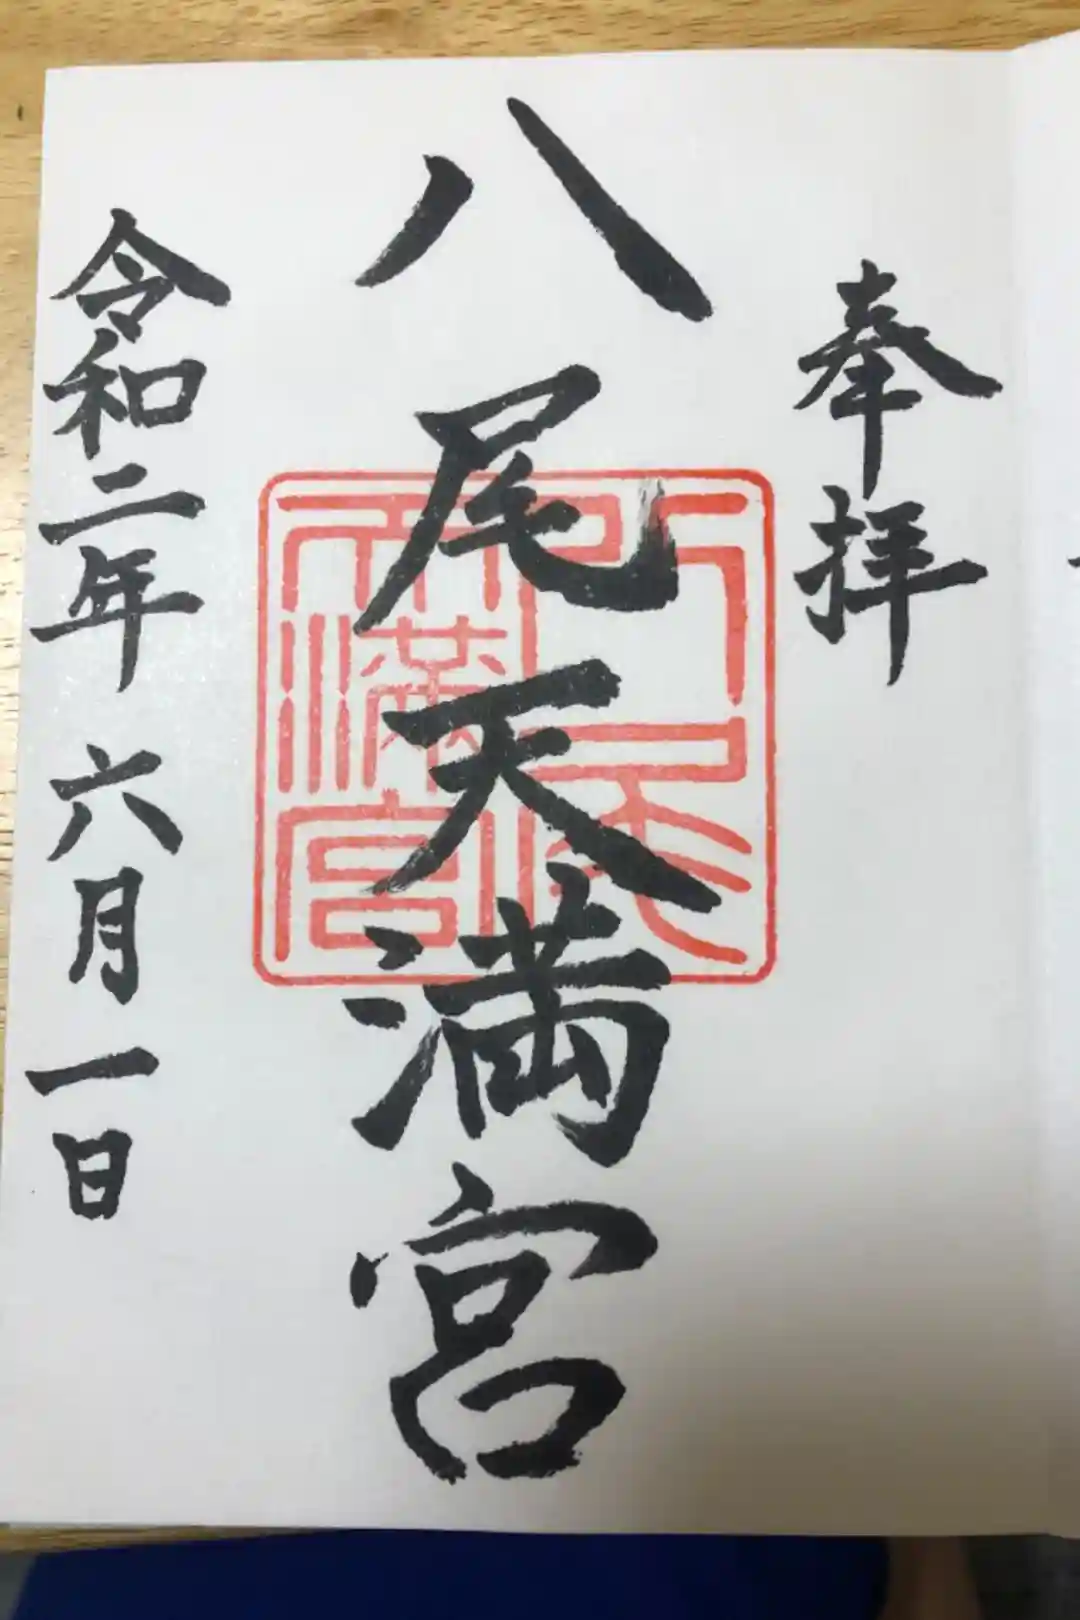 奉拝
八尾天満宮
令和二年六月一日
天満宮